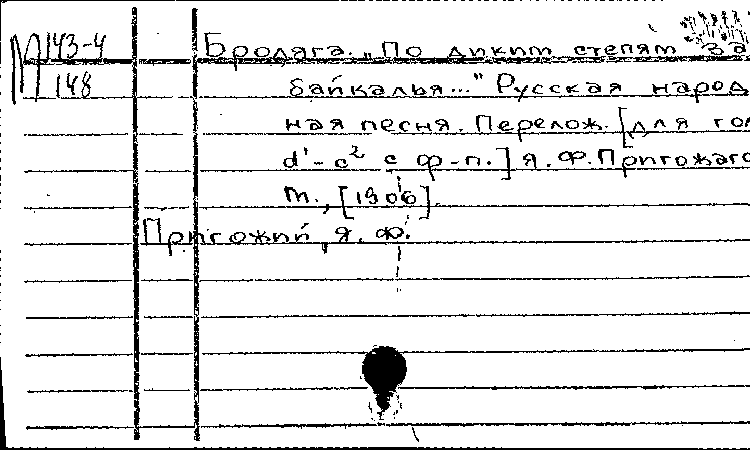 М 143-4
148
Бродяга. „По диким степям За
байкалья..." Русская народ
ная песня. Перелож. [для гол
d¹-c² с ф-п.] Я. Ф. Пригожаго
М., [1906].
Пригожий, Я. Ф.